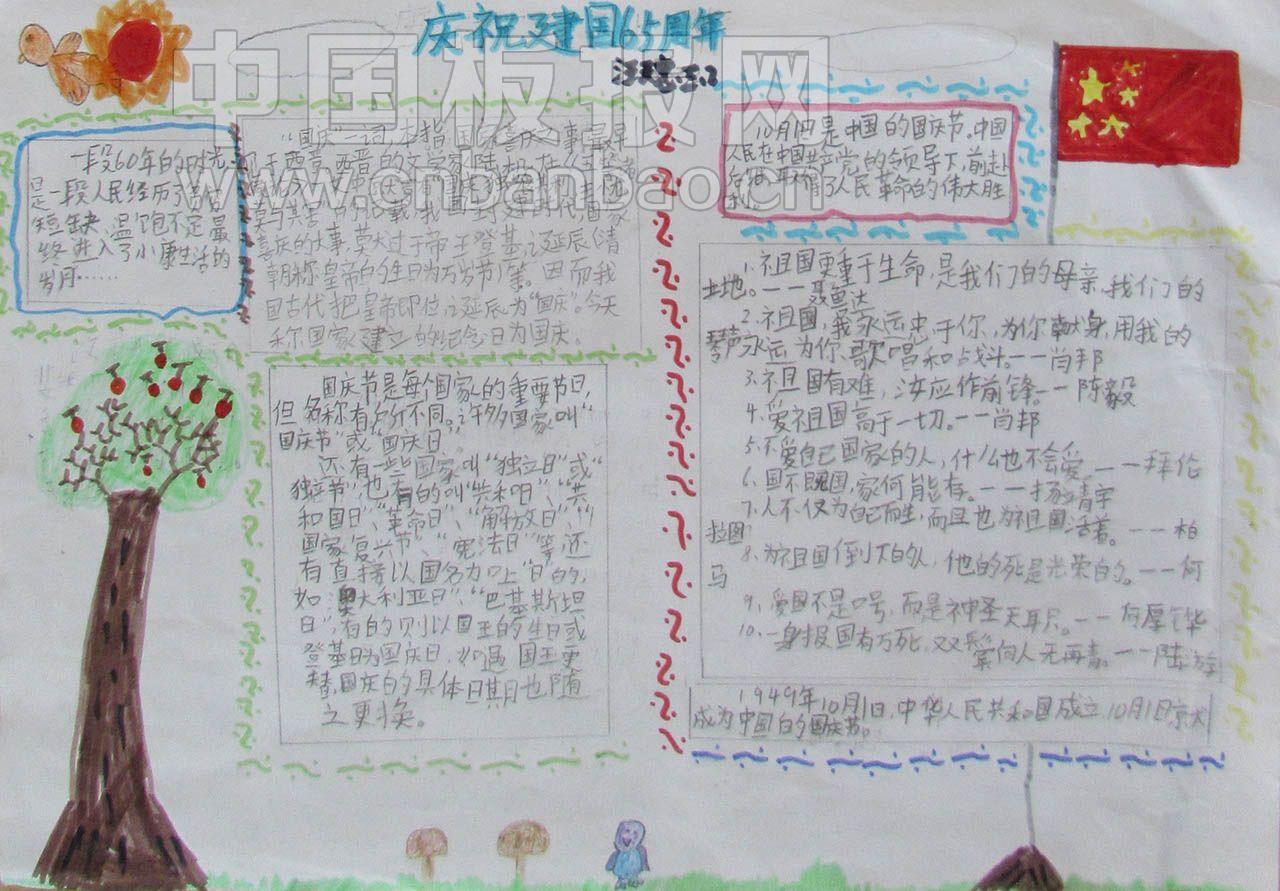 庆祝建国65周年
5.2
中国板报网
www.cnbanbao.cn
一段60年的时光
是一段人民经历了
短缺、温饱不定最
终进入了小康生活的
岁月……
“国庆”一词,本指国家喜庆之事,最早
见于西晋。西晋的文学家陆机在《五等诸
莫与其害”的记载,我国封建时代,国家
喜庆的大事,莫大过于帝王登基、诞辰(清
朝称皇帝的生日为万岁节)等。因而我
国古代把皇帝即位、诞辰为“国庆”。今天
称国家建立的纪念日为国庆。
国庆节是每个国家的重要节日,
但名称有所不同。许多国家叫“
国庆节”或“国庆日。
还有一些国家叫“独立日”或“
独立节”,也有的叫“共和日”、“共
和国日”、“革命日”、“解放日”、“
国家复兴节”、“宪法日”等,还
有直接以国名加上“日”的,
如“澳大利亚日”、“巴基斯坦
日”,有的则以国王的生日或
登基日为国庆日,如遇国王更
替,国庆的具体日期也随
之更换。
10月1日是中国的国庆节。中国
人民在中国共产党的领导下,前赴
后继,取得了人民革命的伟大胜
利。
1、祖国更重于生命,是我们的母亲,我们的
土地。——聂鲁达
2、祖国,我永远忠于你,为你献身,用我的
琴声永远为你歌唱和战斗——肖邦
3、祖国有难,汝应作前锋。—陈毅
4、爱祖国高于一切。——肖邦
5、不爱自己国家的人,什么也不会爱。——拜伦
6、国不既国,家何能存。——杨靖宇
7、人不仅为自己而生,而且也为祖国活着。——柏
拉图
8、为祖国倒下的人,他的死是光荣的。——何
马
9、爱国不是口号,而是神圣天职。——何厚铧
10、一身报国有万死,双鬓向人无再青。——陆游
1949年10月1日,中华人民共和国成立,10月1日
成为中国的国庆节。